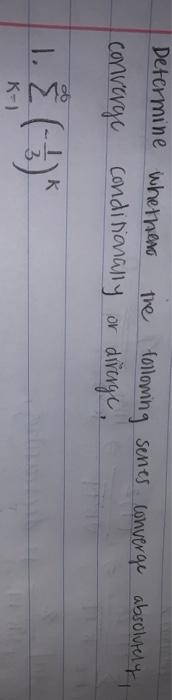 Determine whether the following series converge absolutely,
converge conditionally or diverge.
1. ∞ Σ k=1 (-1/3)^k